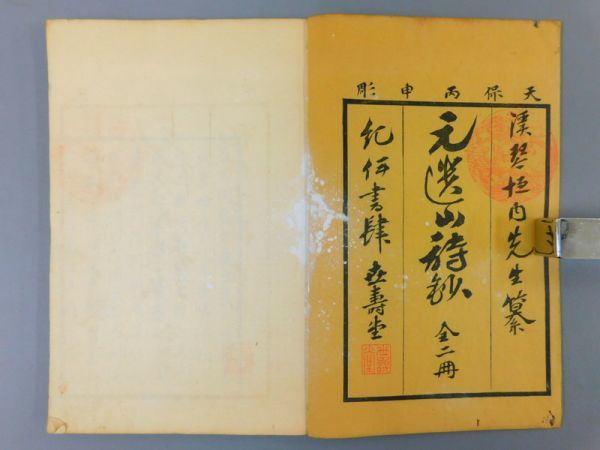 天保丙申彫
溪琴垣内先生纂
元遺山詩鈔 全二冊
紀伊書肆 世壽堂